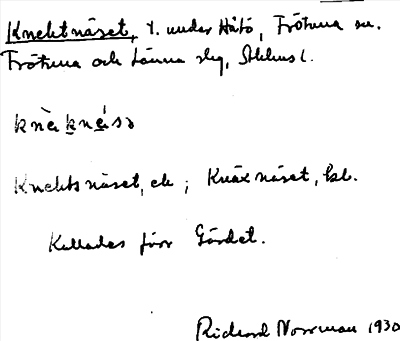 Knektnäset, t. under Håtö, Frötuna sn.
Frötuna och Länna slg, Sthlms l.
knèknésə
Knektsnäset, ek ; Knäxnäset, bl.
Kallades förr Gärdet.
Richard Norrman 1930